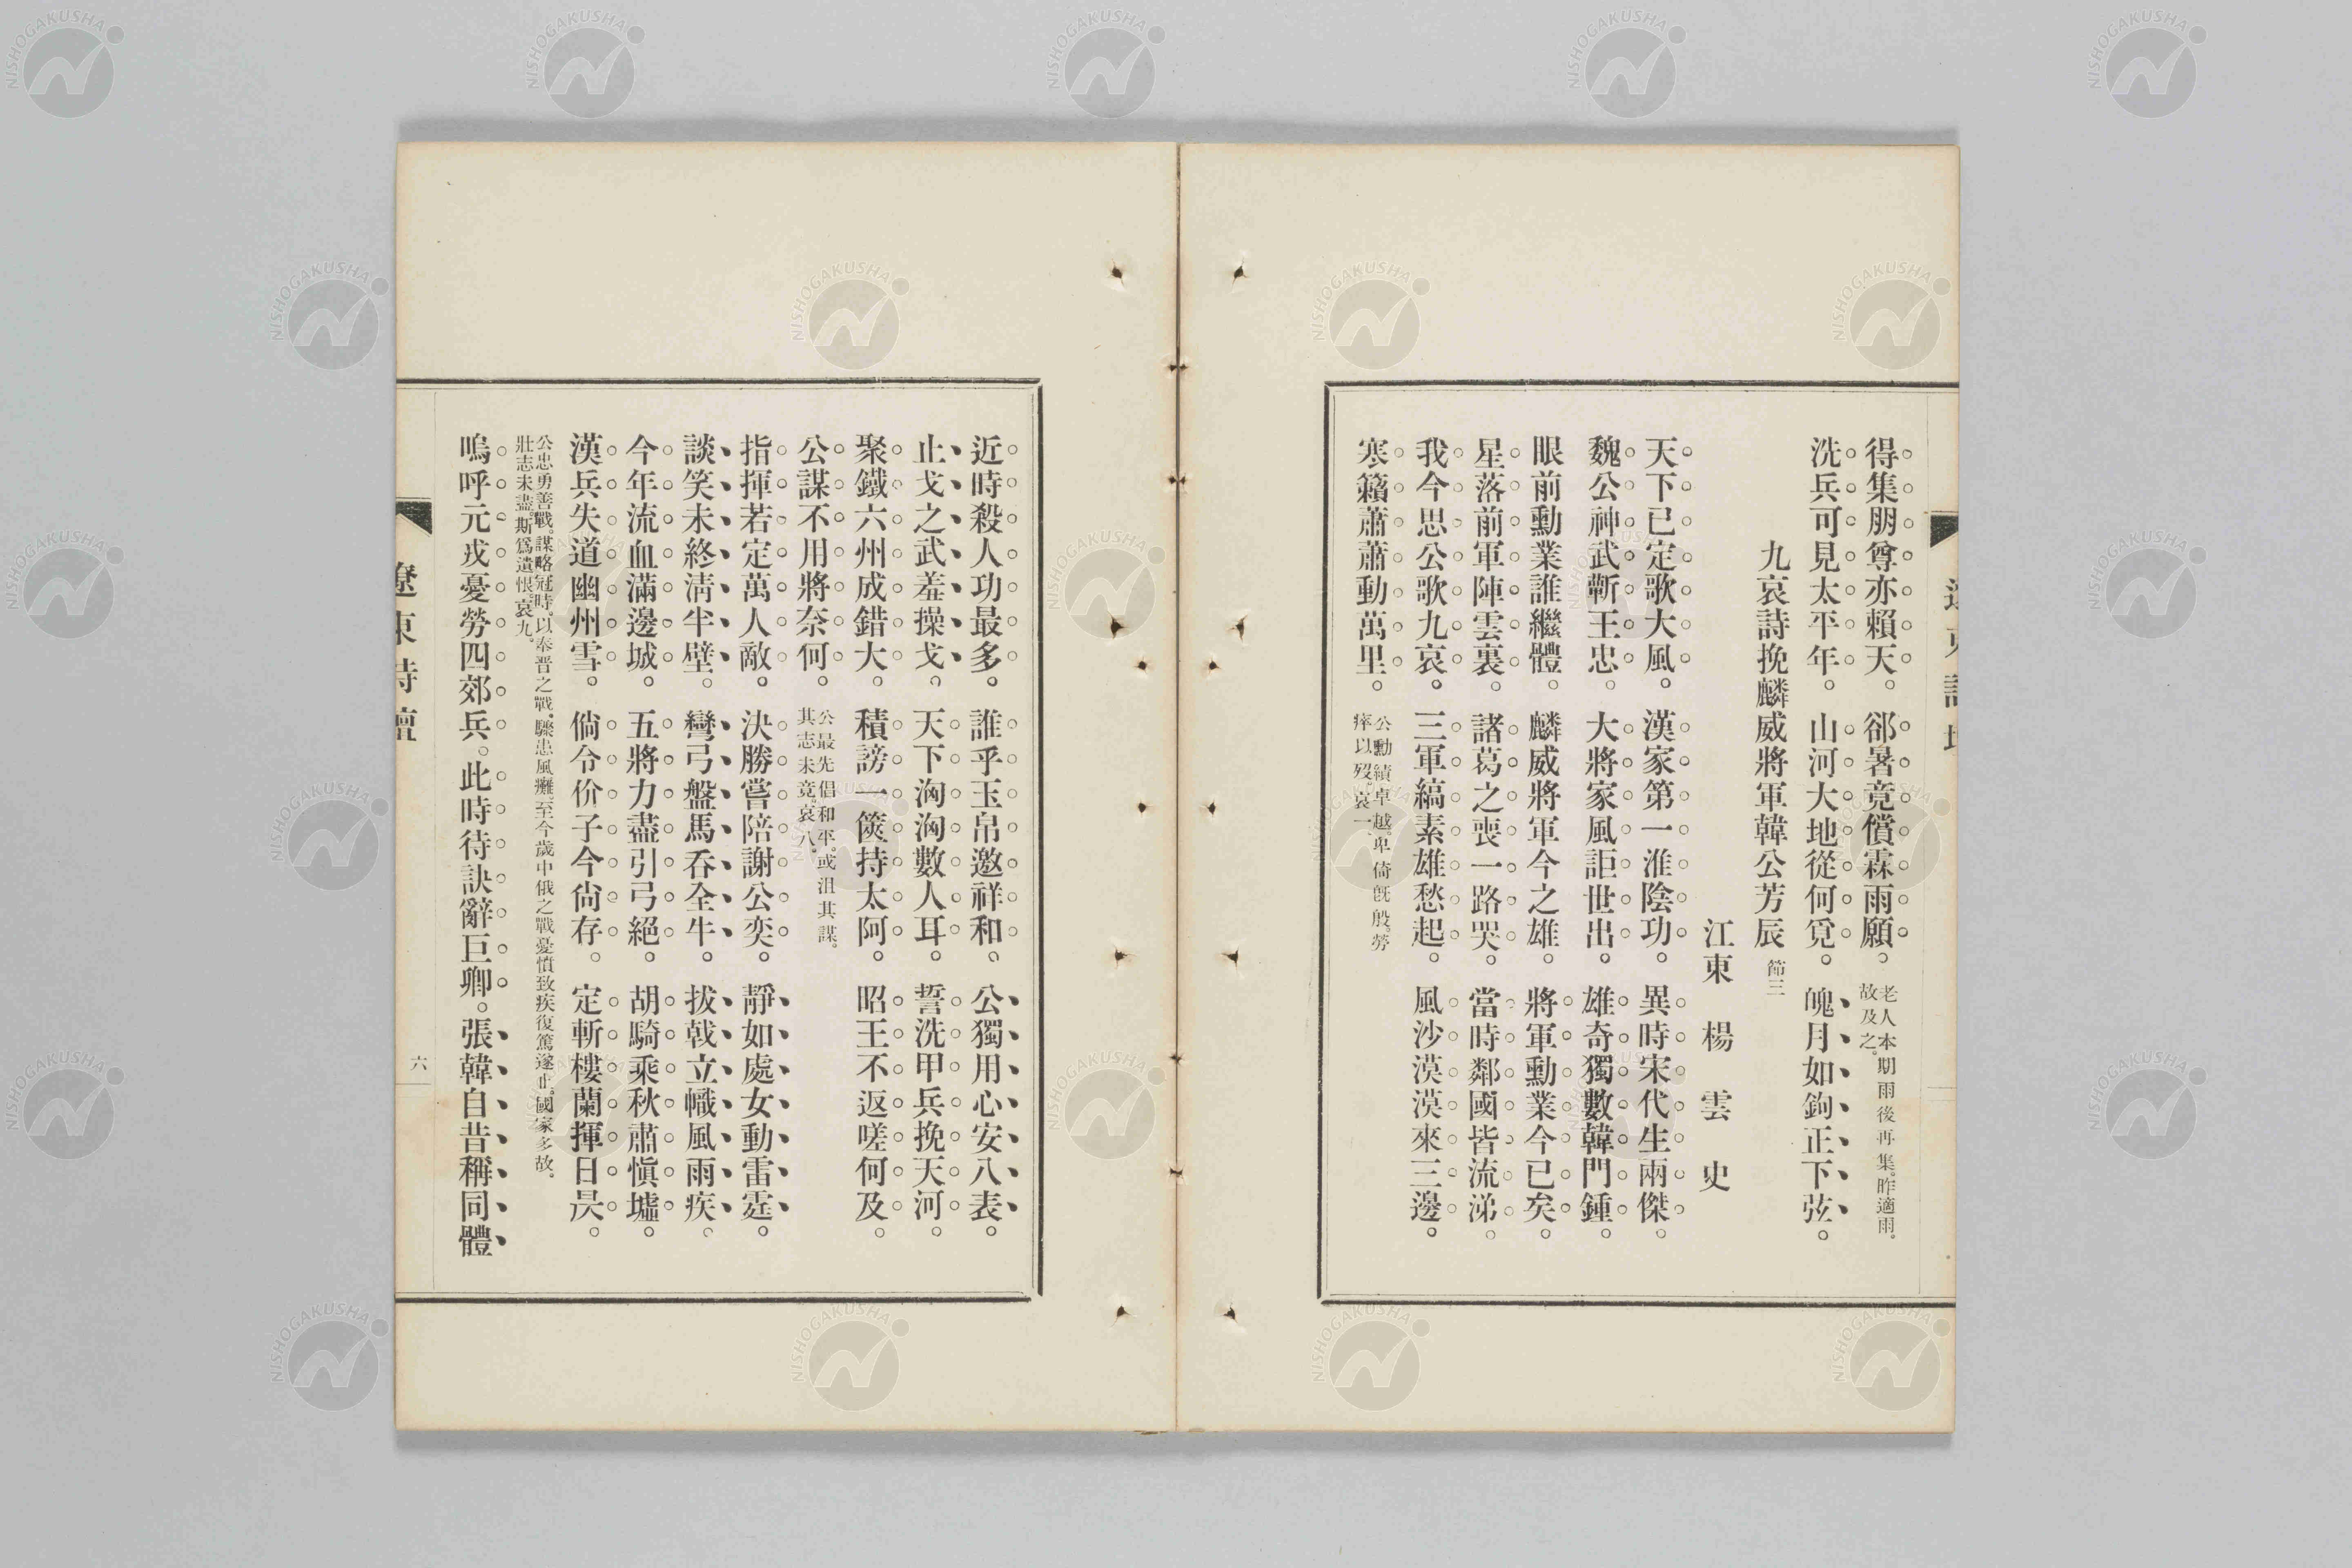 得集朋尊亦賴天。郤暑竟償霖雨願。老人本期雨後再集。昨適雨。故及之。
洗兵可見太平年。山河大地從何覓。魄月如鉤正下弦。
九哀詩挽麟威將軍韓公芳辰 節三
江東 楊雲史
天下已定歌大風。漢家第一淮陰功。異時宋代生兩傑。
魏公神武蘄王忠。大將家風詎世出。雄奇獨數韓門鍾。
眼前勳業誰繼體。麟威將軍今之雄。將軍勳業今已矣。
星落前軍陣雲裏。諸葛之喪一路哭。當時鄰國皆流涕。
我今思公歌九哀。三軍縞素雄愁起。風沙漠漠來三邊。
寒籟蕭蕭動萬里。公勳績卓越。卑倚旣殷。勞瘁以歿。哀一。
近時殺人功最多。誰乎玉帛邀祥和。公獨用心安八表。
止戈之武羞操戈。天下洶洶數人耳。誓洗甲兵挽天河。
聚鐵六州成錯大。積謗一篋持太阿。昭王不返嗟何及。
公謀不用將奈何。公最先倡和平。或沮其謀。其志未竟。哀八。
指揮若定萬人敵。決勝嘗陪謝公奕。靜如處女動雷霆。
談笑未終淸半壁。彎弓盤馬吞全牛。拔戟立幟風雨疾。
今年流血滿邊城。五將力盡引弓絕。胡騎乘秋肅愼墟。
漢兵失道幽州雪。倘令价子今尙存。定斬樓蘭揮日昃。
公忠勇善戰。謀略冠時。以奉晋之戰。驟患風癱。至今歲中俄之戰憂憤致疾復篤遂止。國家多故。壯志未盡。斯爲遺恨。哀九。
嗚呼元戎憂勞四郊兵。此時待訣辭巨卿。張韓自昔稱同體
遼東詩壇
六